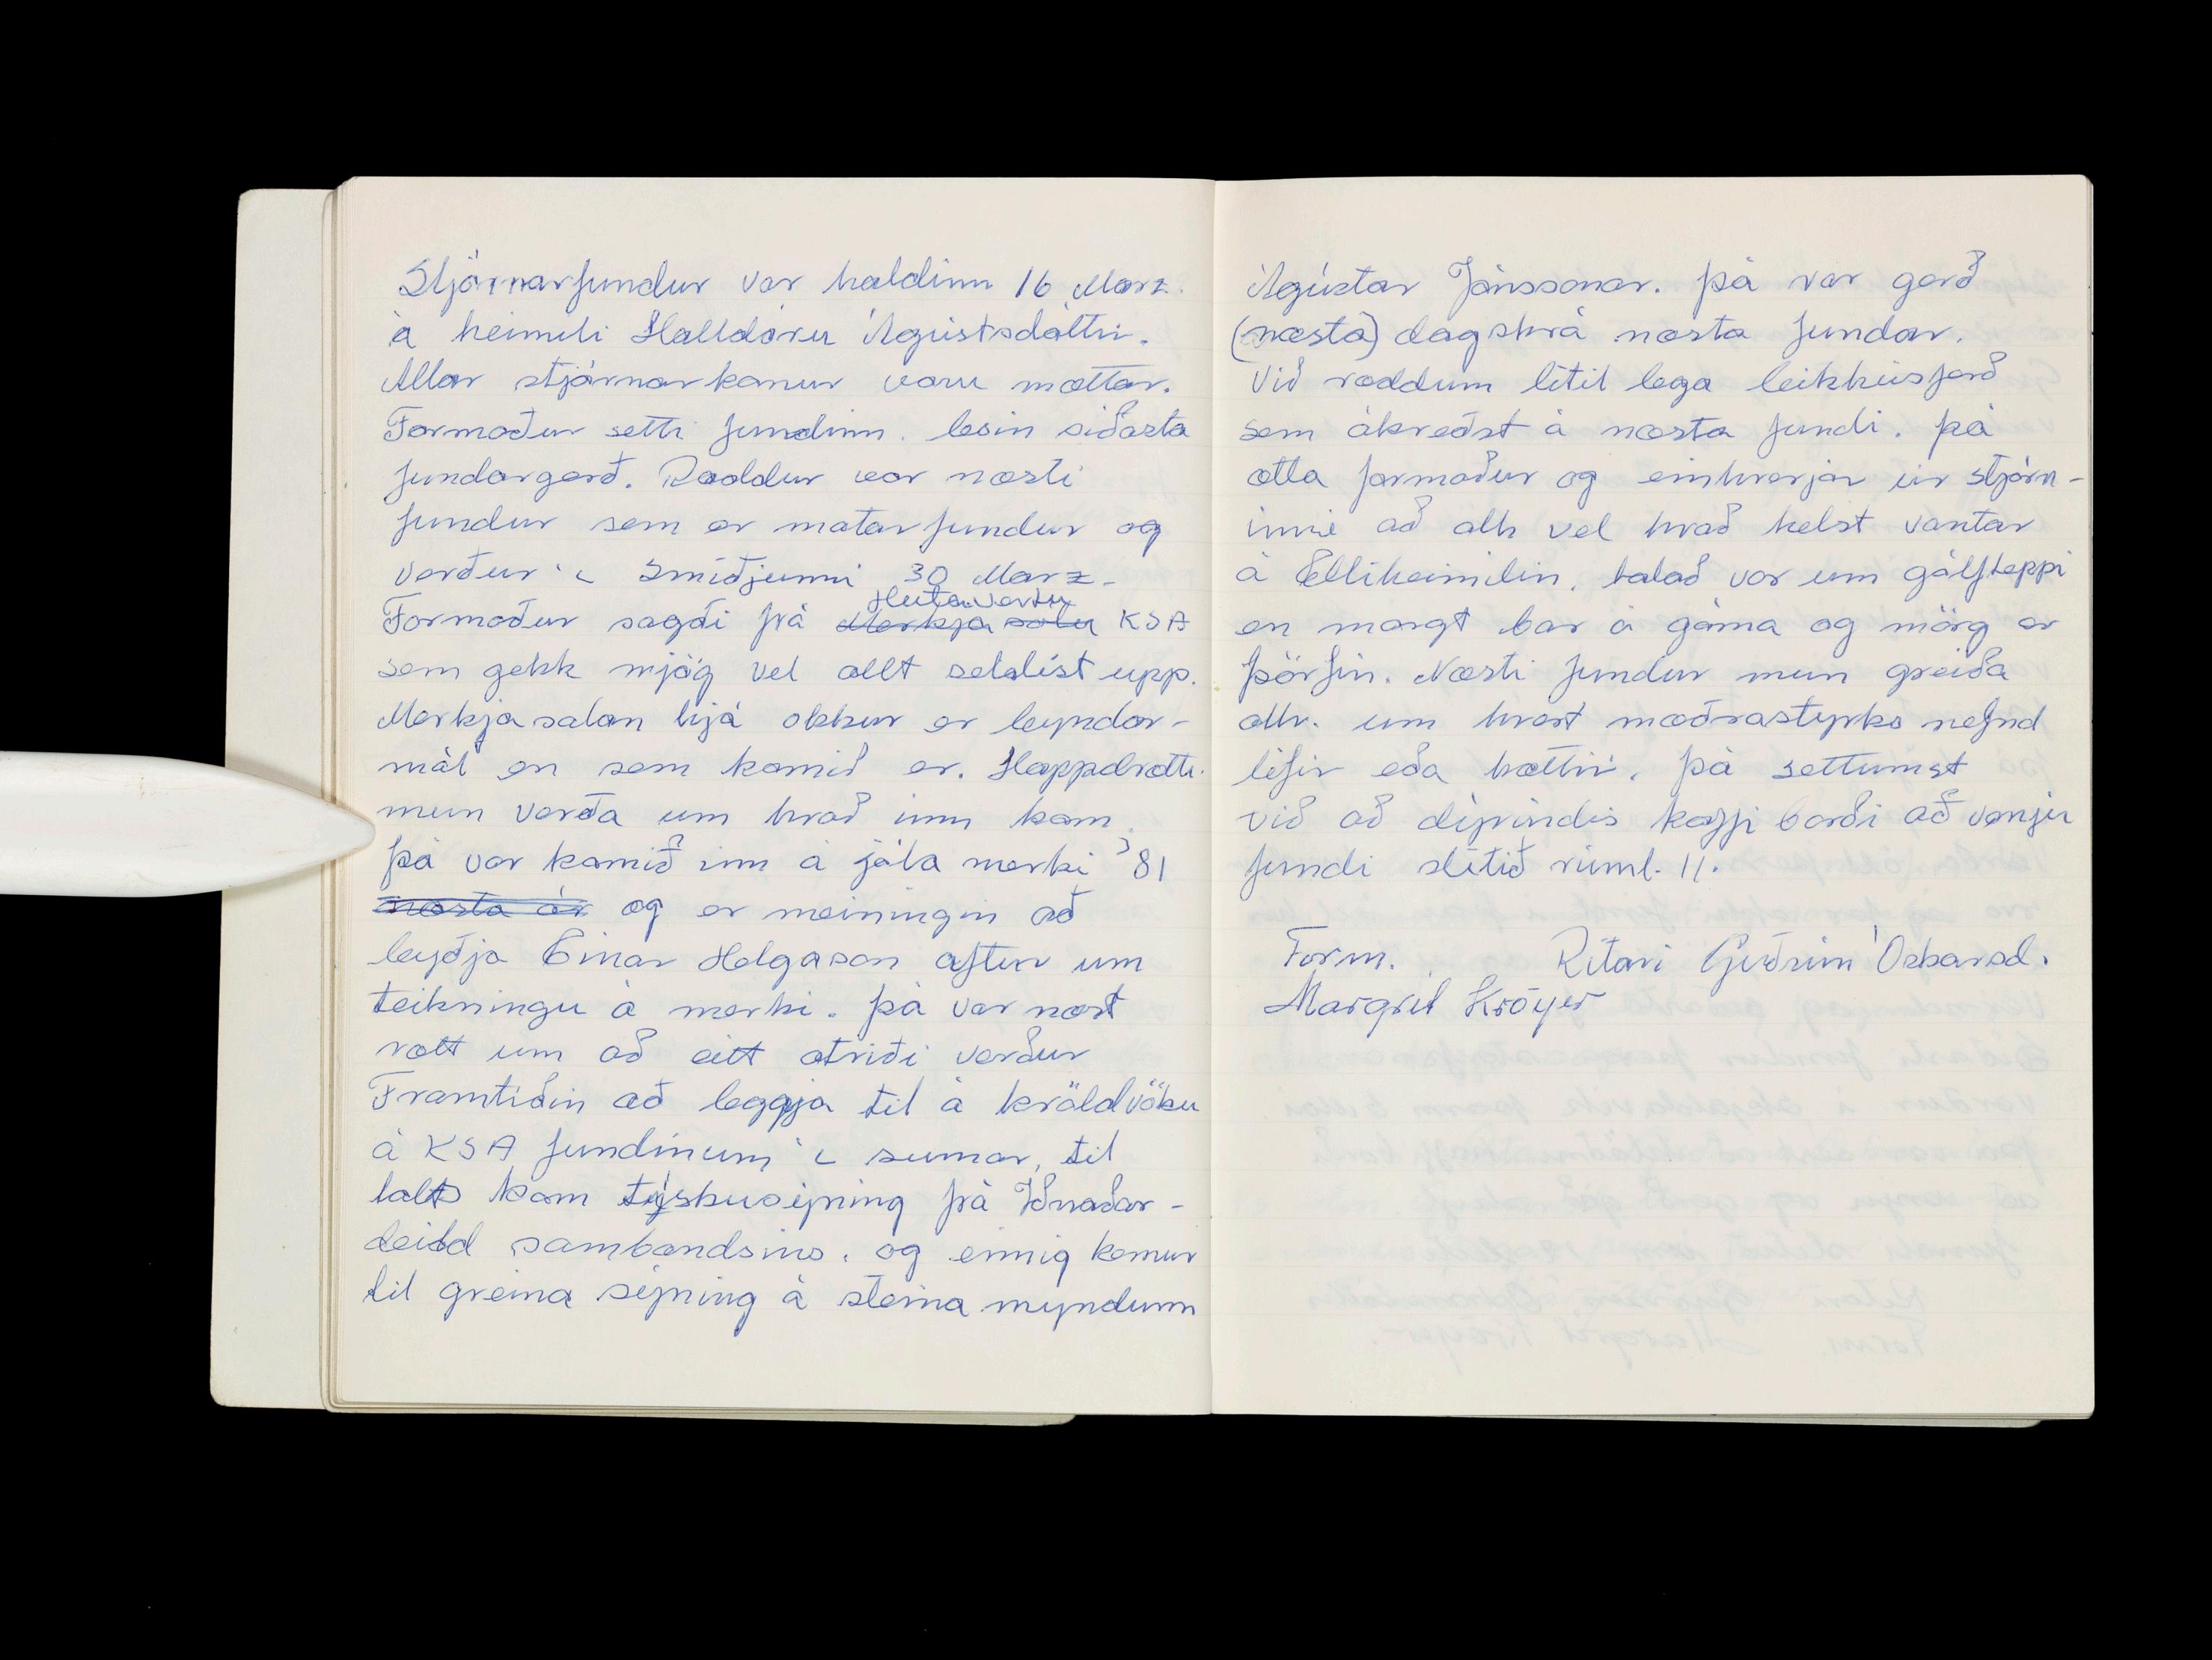 Stjórnarfundur var haldinn 16 Marz.
á heimili Halldóru Ágústsdóttir.
Allar stjórnarkonur voru mættar.
Formaður setti fundinn. lesin síðasta
fundargerð. Ræddur var næsti
fundur sem er matarfundur og
verður í Smiðjunni 30 Marz-
Hlutaveltu
Formaður sagði frá Merkja sölu KSA
sem gekk mjög vel allt seldist upp.
Merkjasalan hjá okkur er leyndar-
mál en sem komið er. Happdrætti.
mun verða um hvað inn kom.
þá var komið inn á jóla merki '81
næsta ár og er meiningin að
leyðja Einar Helgason aftur um
teikningu á merki. þá var næst
rætt um að eitt atriði verður
Framtiðin að leggja til á kvöldvöku
á KSA fundinum í sumar, til
tals kom týskusýning frá Iðnaðar-
deild sambandsins. og einnig kemur
til greina sýning á steina myndum
Ágústar Jónssonar. þá var gerð
(næsta) dagskrá næsta fundar.
Við ræddum lítil lega leikhúsferð
sem ákveðst á næsta fundi. þá
ætla formaður og einhverjar úr stjórn-
inni að ath vel hvað helst vantar
á Elliheimilin. talað var um gólfteppi
en margt bar á góma og mörg er
þörfin. Næsti fundur mun greiða
atkv. um hvort mæðrastyrks nefnd
lifir eða hættir. þá settumst
við að dýrindis kaffi borði að venju
fundi slitið rúml. 11.
Form. Ritari Guðrún Óskarsd.
Margrét Kröyer